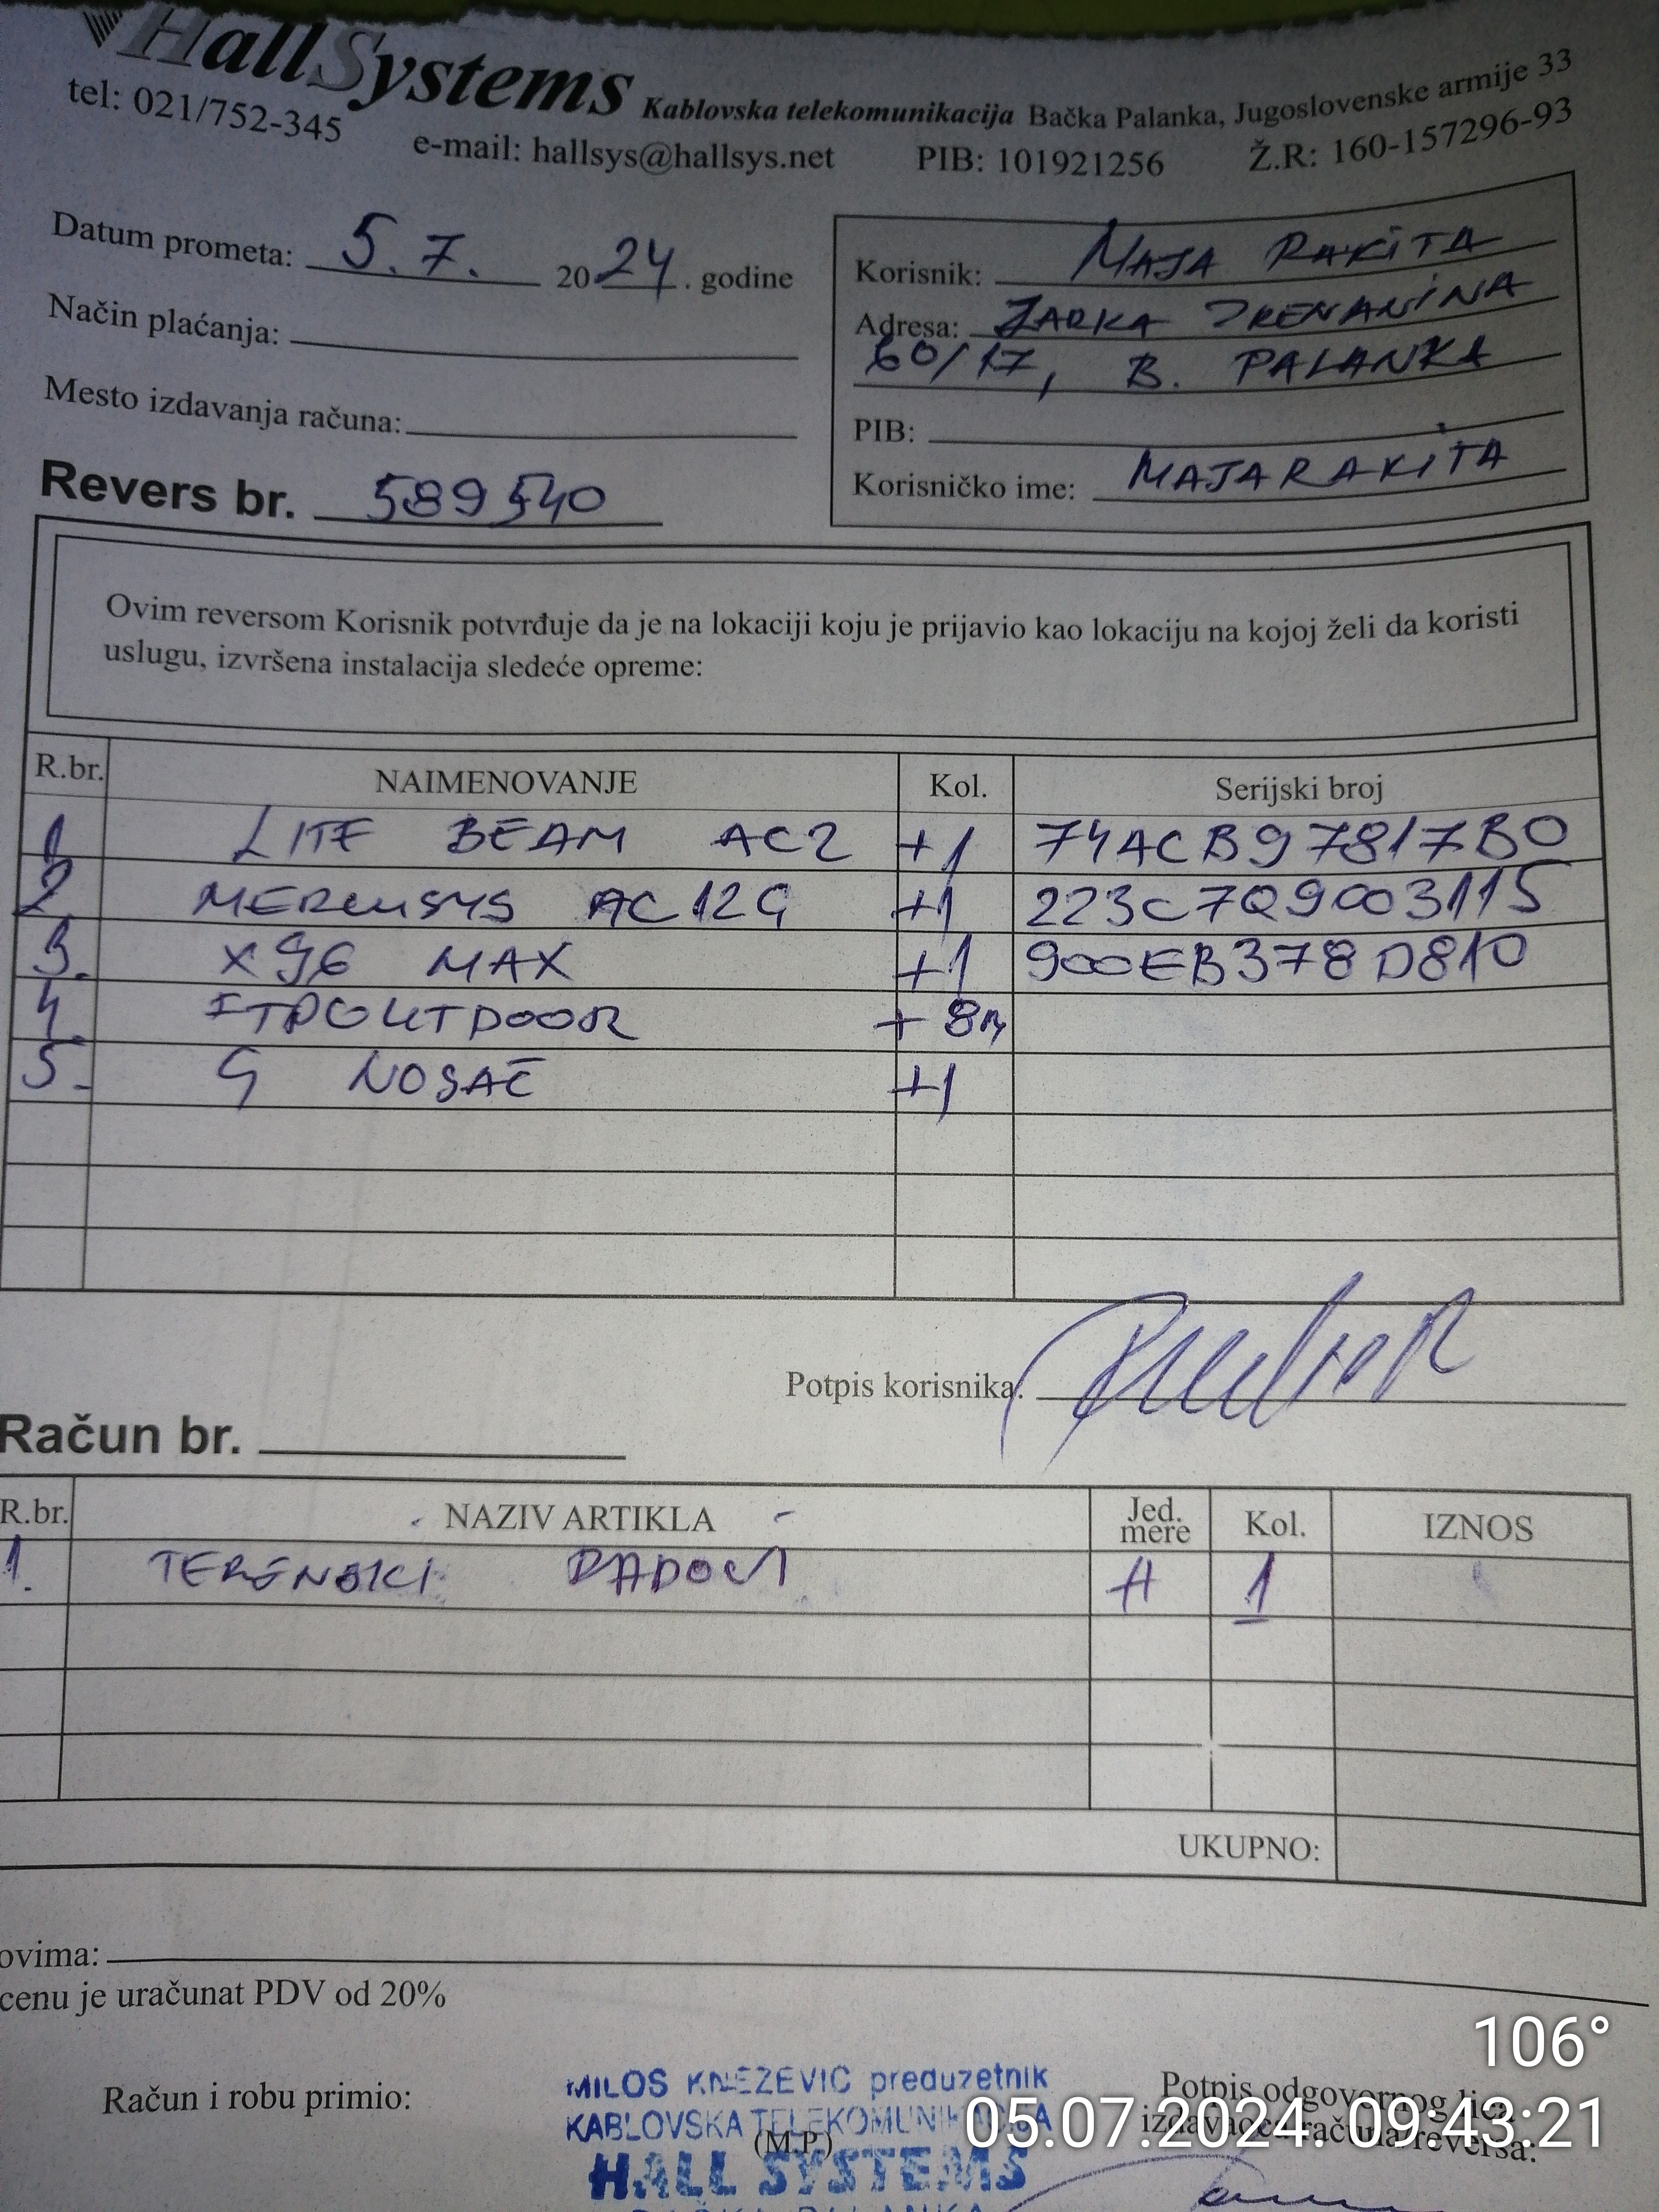 HallSystems Kablovska telekomunikacija Bačka Palanka, Jugoslovenske armije 33
tel: 021/752-345 e-mail: hallsys@hallsys.net PIB: 101921256 Ž.R: 160-157296-93
Datum prometa: 5.7. 2024. godine
Način plaćanja:
Mesto izdavanja računa:
Korisnik: MAJA RAKITA
Adresa: ŽARKA ZRENANINA
60/17, B. PALANKA
PIB:
Korisničko ime: MAJARAKITA
Revers br. 589540
Ovim reversom Korisnik potvrđuje da je na lokaciji koju je prijavio kao lokaciju na kojoj želi da koristi
uslugu, izvršena instalacija sledeće opreme:
R.br. NAIMENOVANJE Kol. Serijski broj
1 LITE BEAM AC2 +1 74ACB97817B0
2 MERCUSYS AC12G +1 223C7Q9003115
3. X96 MAX +1 900EB378D810
4. FTPOUTDOOR + 8m
5. G NOSAČ +1
Potpis korisnika:
Račun br.
R.br. NAZIV ARTIKLA Jed. mere Kol. IZNOS
1. TERENSKI RADOVI H 1
UKUPNO:
ovima:
cenu je uračunat PDV od 20%
Račun i robu primio:
MILOS KNEZEVIC preduzetnik
KABLOVSKA TELEKOMUNIKACIJA
(M.P.)
HALL SYSTEMS
BAČKA PALANKA
Potpis odgovornog lica
izdavaoca računa/reversa:
106°
05.07.2024. 09:43:21